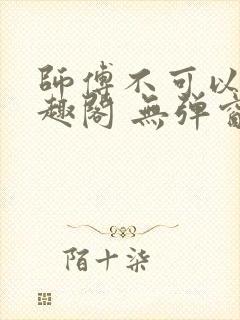 師傅不可以
趣閣 無弹窗
陌十柒